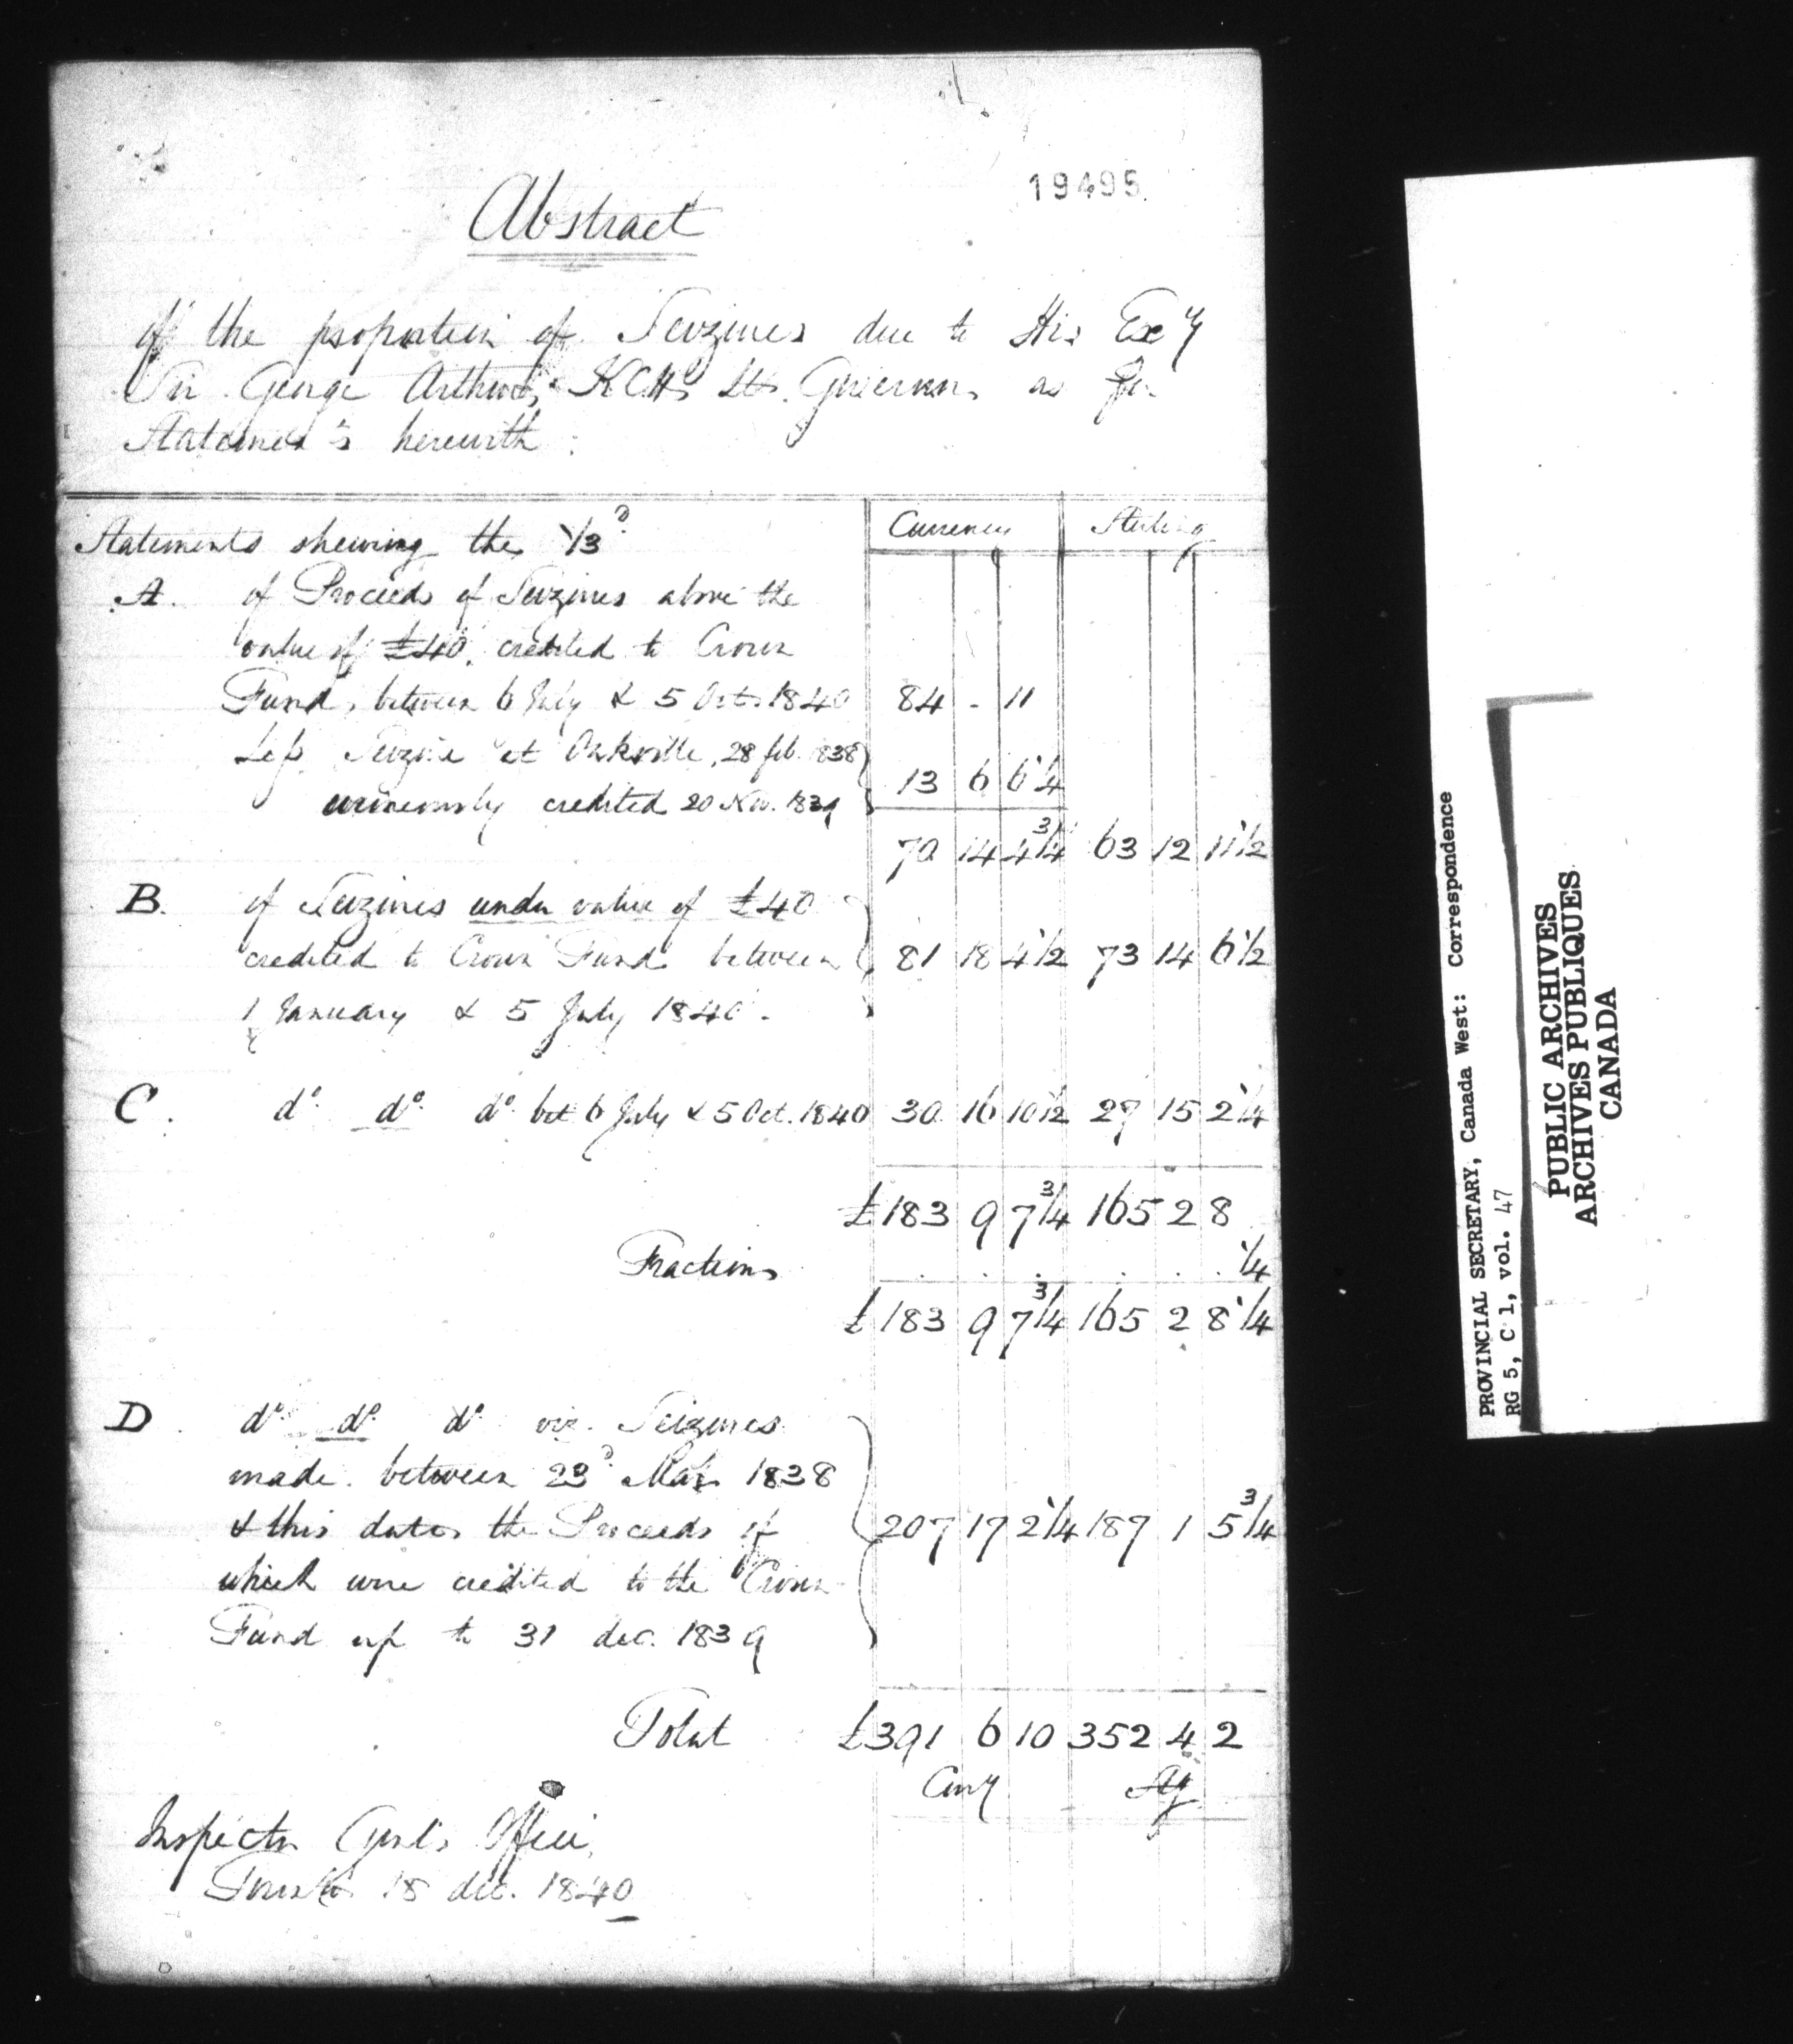 19495
Abstract
of the proportion of Seizures due to His Exy
Sir George Arthur, KCH, Lt. Governor, as per
Statements herewith.
Statements shewing the 1/3d
Currency Sterling
A. of Proceeds of Seizures above the
value of £40, credited to Crown
Fund, between 6 July & 5 Oct. 1840 84 - 11
Less Seizure at Oakville, 28 feb. 1838
erroneously credited 20 Nov. 1839 13 6 6 1/4
70 14 4 3/4 63 12 11 1/2
B. of Seizures under value of £40
credited to Crown Fund between 81 18 4 1/2 73 14 6 1/2
1 January & 5 July 1840.
C. do. do. do. bet 6 July & 5 Oct. 1840 30 16 10 1/2 27 15 2 1/4
£183 9 7 3/4 165 2 8
Fractions . . . . . 1/4
£183 9 7 3/4 165 2 8 1/4
D. do. do. do. viz. Seizures
made between 23d Mar. 1838
& this date, the Proceeds of 207 17 2 1/4 187 1 5 3/4
which were credited to the Crown
Fund up to 31 dec. 1839
Total £391 6 10 352 4 2
Curry Stg
Inspector Genl's Office,
Toronto 18 dec. 1840
PROVINCIAL SECRETARY, Canada West: Correspondence
RG 5, C 1, vol. 47
PUBLIC ARCHIVES
ARCHIVES PUBLIQUES
CANADA